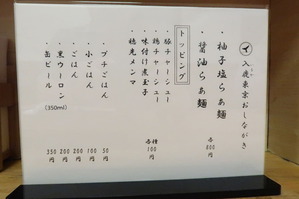 イ 入鹿東京おしながき
・柚子塩らぁ麺
・醤油らぁ麺
各800円
トッピング
・豚チャーシュー
・鶏チャーシュー
・味付け煮玉子
・穂先メンマ
各種100円
・プチごはん 50円
・小ごはん 100円
・ごはん 200円
・黒ウーロン 200円
・缶ビール (350ml) 350円